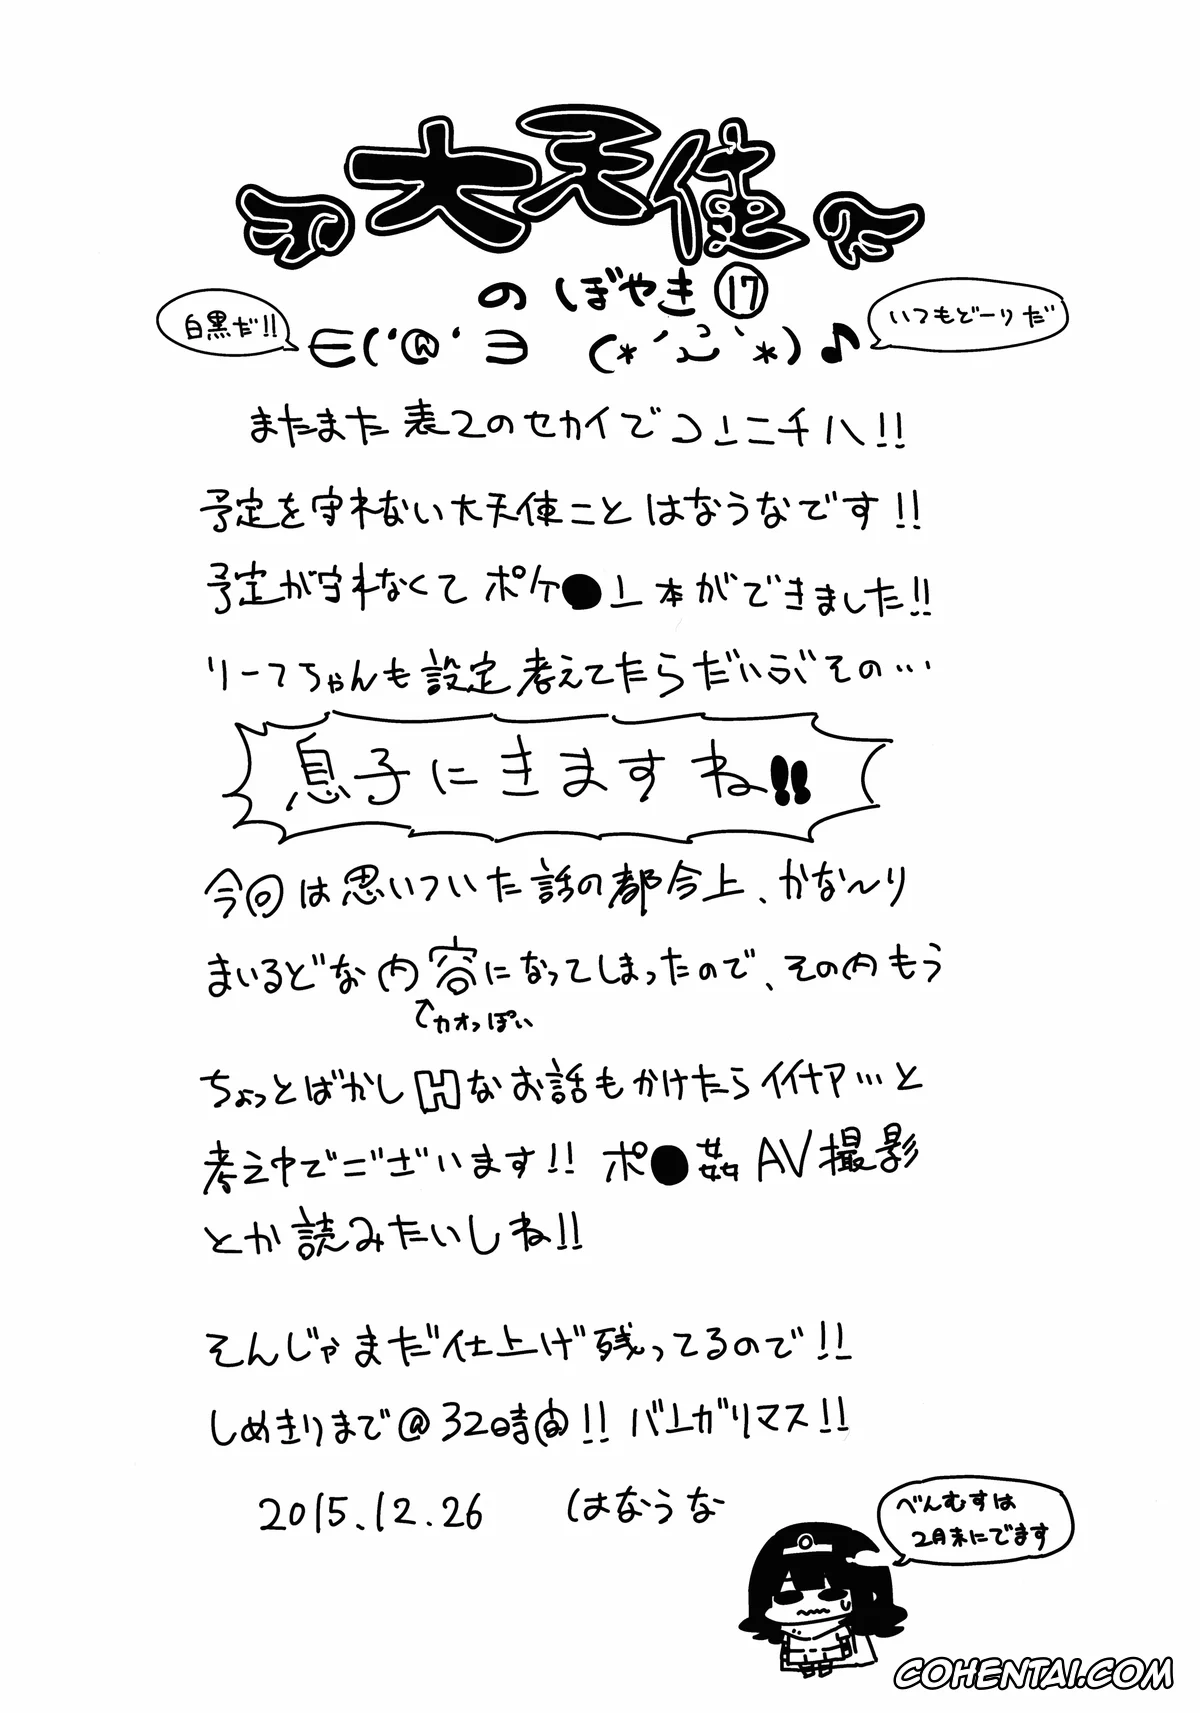 大天使
のぼやき⑰
白黒だ!!
∈('@'∋ (*´ω`*)♪
いつもどーりだ
またまた表2のセカイでコンニチハ!!
予定を守れない大天使こと はなうなです!!
予定が守れなくてポケ●ン本ができました!!
リーフちゃんも設定考えてたらだいぶその…
息子にきますね!!
今回は思いついた話の都合上、かな〜り
まいるどな内容になってしまったので、その内もう
↑カオっぽい
ちょっとばかしHなお話もかけたらイイナァ…と
考え中でございます!! ポ●姦AV撮影
とか読みたいしね!!
そんじゃまだ仕上げ残ってるので!!
しめきりまで@32時間!! バンガリマス!!
2015.12.26 はなうな
べんむすは
2月末にでます
COHENTAI.COM